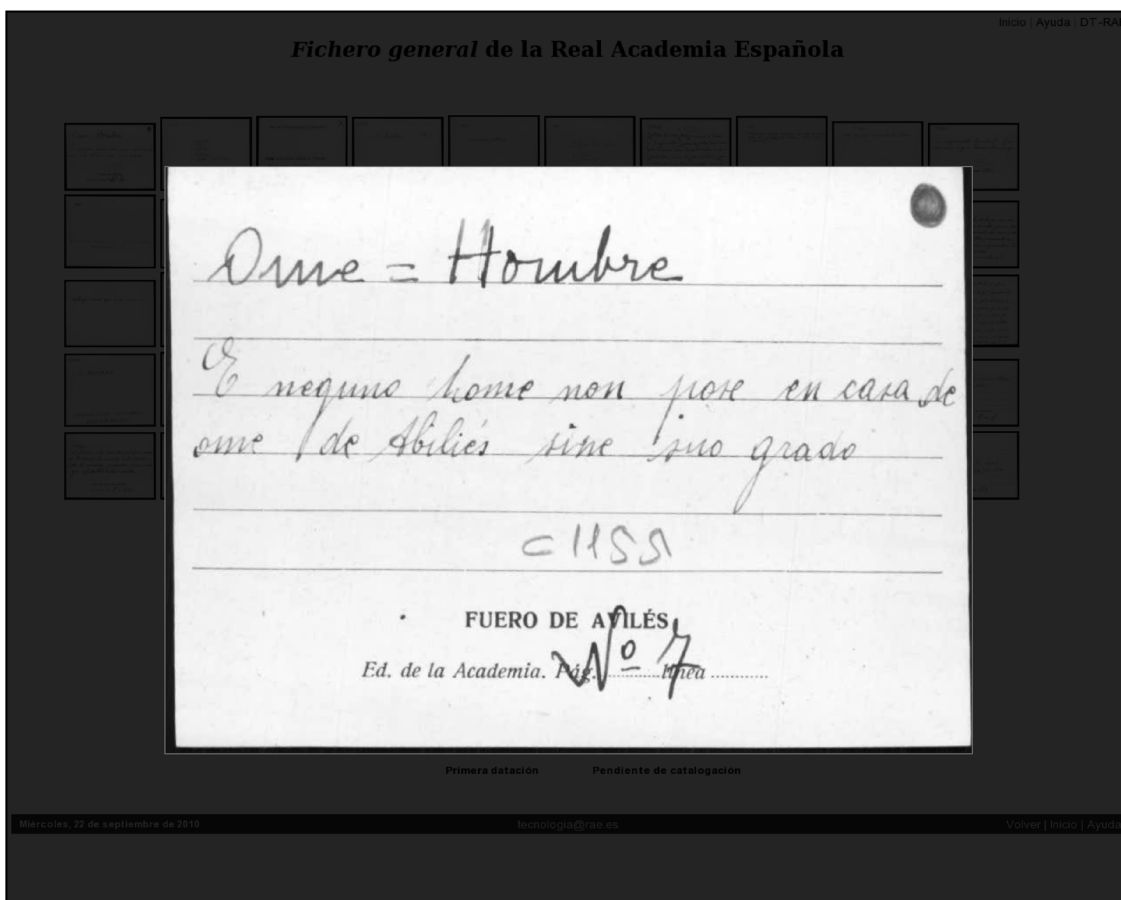 Inicio | Ayuda | DT-RAE
Fichero general de la Real Academia Española
Ome = Hombre
E neguno home non pose en casa de
ome de Abiliés sine suo grado
c 1155
FUERO DE AVILÉS
Nº 7
Ed. de la Academia. Pág. línea
Primera datación Pendiente de catalogación
Miercoles, 22 de septiembre de 2010 tecnologia@rae.es Volver | Inicio | Ayuda